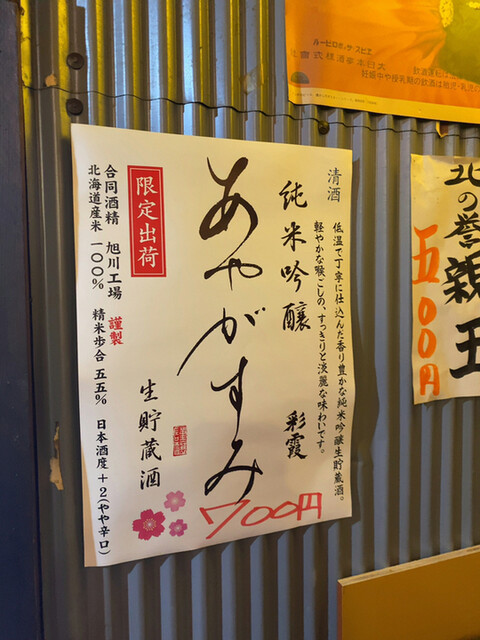 清酒
低温で丁寧に仕込んだ香り豊かな純米吟醸生貯蔵酒。
軽やかな喉ごしの、すっきりと淡麗な味わいです。
純米吟醸 彩霞
あやがすみ
生貯蔵酒
限定出荷
合同酒精 旭川工場 謹製
北海道産米 一〇〇% 精米歩合 五五% 日本酒度 +2(やや辛口)
700円
北の誉親王
五00円